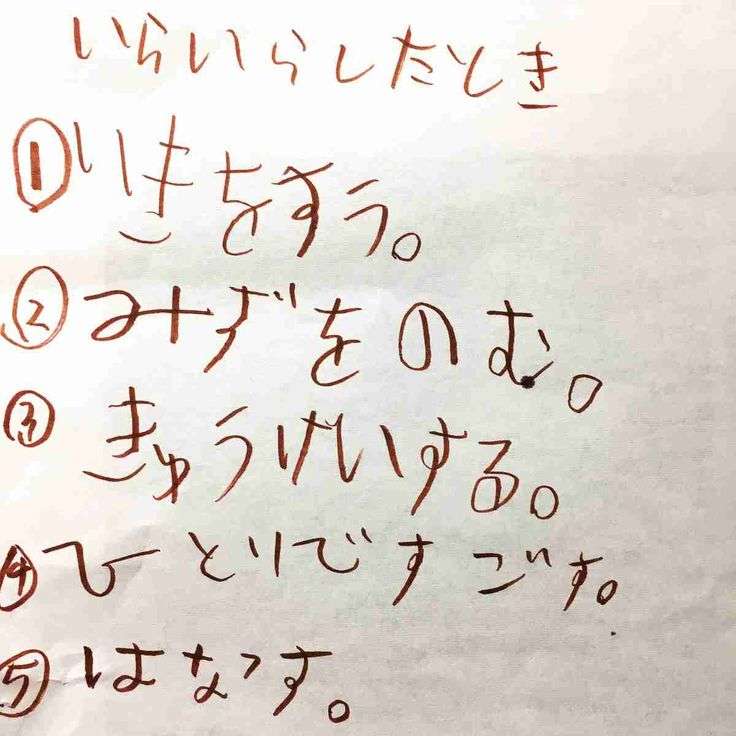 いらいらしたとき
①いきをすう。
②みずをのむ。
③きゅうけいする。
④ひとりですごす。
⑤はなす。